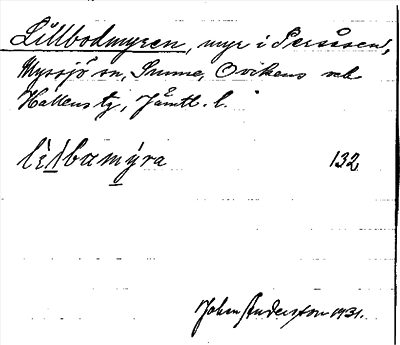 Lillbodmyren, myr i Persåsen,
Myssjö sn, Sunne, Ovikens och
Hallens tg, Jämtl. l.
132
John Anderson 1931.